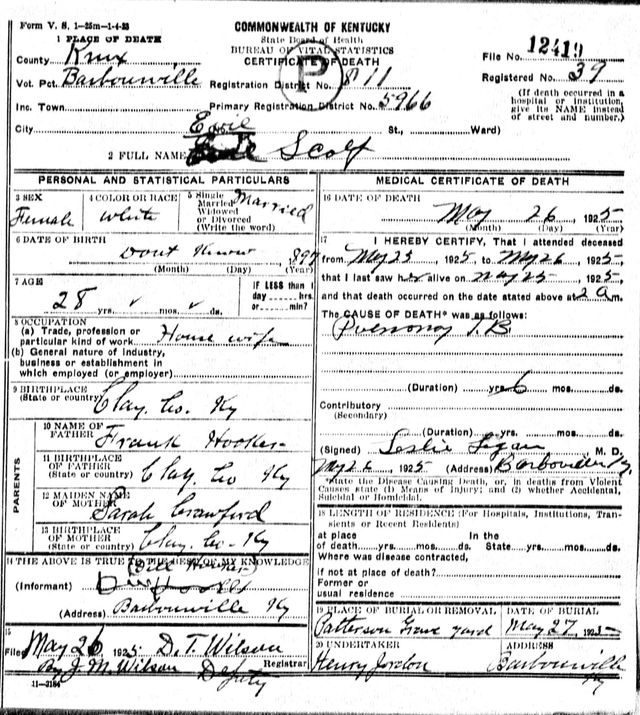 Form V. S. 1—25m—1-4-23
COMMONWEALTH OF KENTUCKY
State Board of Health
BUREAU OF VITAL STATISTICS
CERTIFICATE OF DEATH
1 PLACE OF DEATH
County Knox
Vot. Pct. Barbourville
Inc. Town
City
Registration District No. 811
Primary Registration District No. 5966
St., Ward)
File No. 12419
Registered No. 39
(If death occurred in a hospital or institution, give its NAME instead of street and number.)
P
2 FULL NAME Scalf
PERSONAL AND STATISTICAL PARTICULARS
3 SEX
Female
4 COLOR OR RACE
White
5 Single
Married
Widowed
or Divorced
(Write the word)
Married
6 DATE OF BIRTH
Dont Know 1897
(Month) (Day) (Year)
7 AGE
28 yrs. mos. ds.
IF LESS than 1
day hrs.
or min?
8 OCCUPATION
(a) Trade, profession or
particular kind of work House wife
(b) General nature of industry,
business or establishment in
which employed (or employer)
9 BIRTHPLACE
(State or country) Clay. Co. Ky
PARENTS
10 NAME OF
FATHER Frank Hooker
11 BIRTHPLACE
OF FATHER
(State or country) Clay. Co Ky
12 MAIDEN NAME
OF MOTHER Sarah Crawford
13 BIRTHPLACE
OF MOTHER
(State or country) Clay. Co. Ky
14 THE ABOVE IS TRUE TO THE BEST OF MY KNOWLEDGE
(Informant)
(Address) Barbourville Ky
15
Filed May 26 1925 D. T. Wilson
Registrar
By J. M. Wilson Deputy
11—3184
MEDICAL CERTIFICATE OF DEATH
16 DATE OF DEATH
May 26, 1925
(Month) (Day) (Year)
17 I HEREBY CERTIFY, That I attended deceased
from May 23, 1925, to May 26, 1925,
that I last saw her alive on May 25 1925,
and that death occurred on the date stated above at 2 a m.
The CAUSE OF DEATH* was as follows:
Pulmonary T. B
(Duration) yrs. 6 mos. ds.
Contributory
(Secondary)
(Duration) yrs. mos. ds.
(Signed) Leslie Logan M. D.
May 26 1925 (Address) Barbourville Ky.
*State the Disease Causing Death, or, in deaths from Violent
Causes state (1) Means of Injury; and (2) whether Accidental,
Suicidal or Homicidal.
18 LENGTH OF RESIDENCE (For Hospitals, Institutions, Transients or Recent Residents)
at place
of death yrs. mos. ds.
In the
State yrs. mos. ds.
Where was disease contracted,
if not at place of death?
Former or
usual residence
19 PLACE OF BURIAL OR REMOVAL
Patterson Grave yard
DATE OF BURIAL
May 27 1925
20 UNDERTAKER
Henry Jordon
ADDRESS
Barbourville
Ky